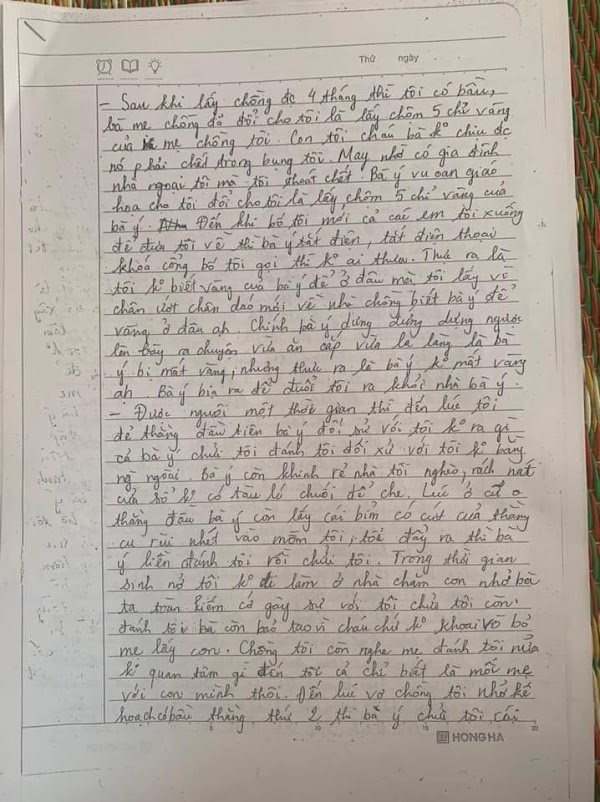 Thứ ngày
- Sau khi lấy chồng đc 4 tháng thì tôi có bầu,
bà mẹ chồng đã đổi cho tôi là lấy chôm 5 chỉ vàng
của mẹ chồng tôi. Con tôi cháu bà k° chịu đc
nó phải chết trong bụng tôi. May nhờ có gia đình
nhà ngoại tôi mà tôi thoát chết. Bà ý vu oan giáo
họa cho tôi đổi cho tôi là lấy chôm 5 chỉ vàng của
bà ý. Đến khi bố tôi mới cả các em tôi xuống
để đưa tôi về thì bà ý tắt điện, tắt điện thoại
khoá cổng bố tôi gọi thì k° ai thưa. Thực ra là
tôi k° biết vàng của bà ý để ở đâu mà tôi lấy vì
chân ướt chân dáo mới về nhà chồng biết bà ý để
vàng ở đâu ạh. Chính bà ý dựng đứng dựng ngược
lên bày ra chuyện vừa ăn cắp vừa la làng là bà
ý bị mất vàng, nhưng thực ra là bà ý k° mất vàng
ah. Bà ý bịa ra để đuổi tôi ra khỏi nhà bà ý.
- Được người một thời gian thì đến lúc tôi
đẻ thằng đầu tiên bà ý đối sử với tôi k° ra gì
cả bà ý chửi tôi đánh tôi đối xử với tôi k° bằng
ng ngoài. Bà ý còn khinh rẻ nhà tôi nghèo, rách nát
cửa sổ k° có tàu lá chuối để che. Lúc ở cữ
tháng đầu bà ý còn lấy cái bỉm có cứt của thằng
cu rúi nhét vào mồm tôi, tôi đẩy ra thì bà
ý liền đánh tôi rồi chửi tôi. Trong thời gian
sinh nở tôi k° đi làm ở nhà chăm con nhờ bà
ta toàn kiếm cớ gây sự với tôi chửi tôi còn
đánh tôi bà còn bảo tao vì cháu chứ k° khoai vo bỏ
mẹ lấy con. Chồng tôi còn nghe mẹ đánh tôi nữa
k° quan tâm gì đến tôi cả chỉ biết là mỗi mẹ
với con mình thôi. Đến lúc vợ chồng tôi nhỡ kế
hoạch có bầu thằng thứ 2 thì bà ý chửi tôi cái
5 10 15 20
HONG HA